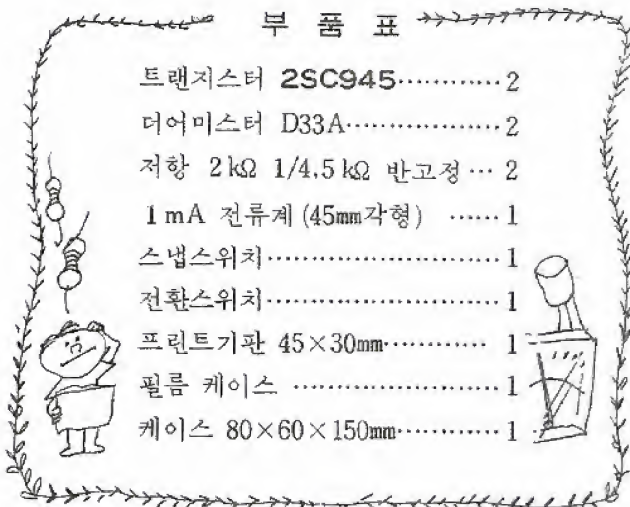 부 품 표
트랜지스터 2SC945…………2
더어미스터 D33A………………2
저항 2kΩ 1/4.5kΩ 반고정…2
1mA 전류계(45mm각형) ……1
스냅스위치……………………1
전환스위치……………………1
프린트기판 45×30mm………… 1
필름 케이스 …………………1
케이스 80×60×150mm…………1